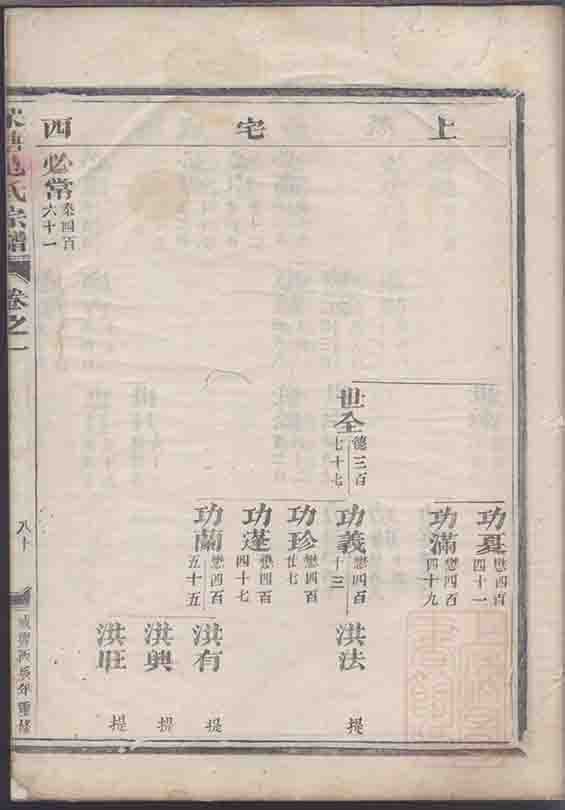 上宅西
世全 德三百七十七
功夏 懋四百四十一
功滿 懋四百四十九
功義 懋四百十三
功珍 懋四百廿七
功蓬 懋四百四十七
功蘭 懋四百五十五
洪法 提
洪有 提
洪興 提
洪旺 提
必常 泰四百六十一
氏宗譜
卷之一
八十
咸豐丙辰年重修